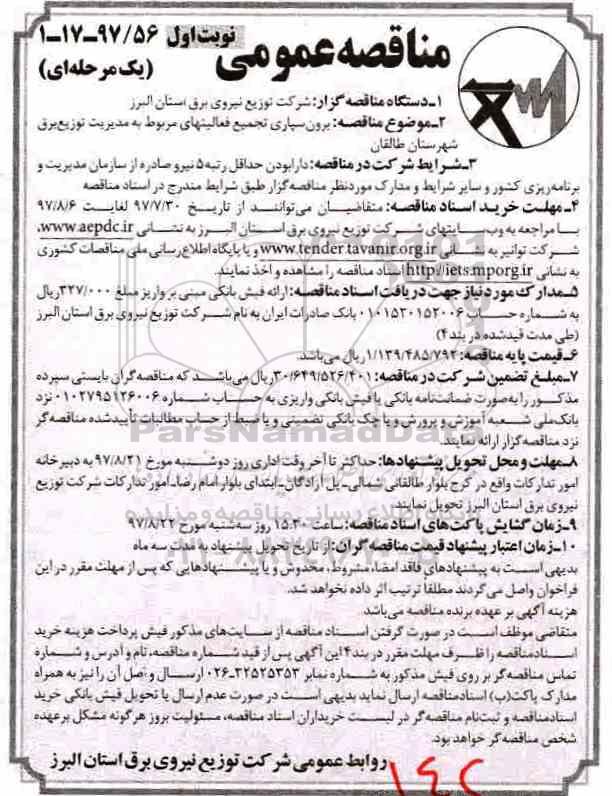 مناقصه عمومی
نوبت اول
۱-۱۷-۹۷/۵۶
(یک مرحله‌ای)
۱-دستگاه مناقصه گزار: شرکت توزیع نیروی برق استان البرز
۲-موضوع مناقصه: برون سپاری تجمیع فعالیتهای مربوط به مدیریت توزیع برق
شهرستان طالقان
۳-شرایط شرکت در مناقصه: دارا بودن حداقل رتبه ۵ نیرو صادره از سازمان مدیریت و
برنامه‌ریزی کشور و سایر شرایط و مدارک موردنظر مناقصه‌گزار طبق شرایط مندرج در اسناد مناقصه
۴-مهلت خرید اسناد مناقصه: متقاضیان می‌توانند از تاریخ ۹۷/۷/۳۰ لغایت ۹۷/۸/۶
با مراجعه به وب‌سایتهای شرکت توزیع نیروی برق استان البرز به نشانی www.aepdc.ir،
شرکت توانیر به نشانی www.tender.tavanir.org.ir و یا پایگاه اطلاع‌رسانی ملی مناقصات کشوری
به نشانی http://iets.mporg.ir اسناد مناقصه را مشاهده و اخذ نمایند.
۵-مدارک مورد نیاز جهت دریافت اسناد مناقصه: ارائه فیش بانکی مبنی بر واریز مبلغ ۳۲۷/۰۰۰ ریال
به شماره حساب ۰۱۰۱۵۳۰۱۵۲۰۰۶ بانک صادرات ایران به نام شرکت توزیع نیروی برق استان البرز
(طی مدت قید شده در بند ۴)
۶-قیمت پایه مناقصه: ۱/۱۳۹/۴۸۵/۷۹۲ ریال می‌باشد.
۷-مبلغ تضمین شرکت در مناقصه: ۳۰/۶۴۹/۵۲۶/۴۰۱ ریال می‌باشد که مناقصه‌گران بایستی سپرده
مذکور را به‌صورت ضمانت‌نامه بانکی یا فیش بانکی واریزی به حساب شماره ۰۱۰۲۷۹۵۱۲۶۰۰۶ نزد
بانک ملی شعبه آموزش و پرورش و یا چک بانکی تضمینی و یا ضبط از حساب مطالبات تأیید شده مناقصه گر
نزد مناقصه‌گزار ارائه نمایند.
۸-مهلت و محل تحویل پیشنهادها: حداکثر تا آخر وقت اداری روز دوشنبه مورخ ۹۷/۸/۲۱ به دبیرخانه
امور تدارکات واقع در کرج بلوار طالقانی شمالی- پل آزادگان- ابتدای بلوار امام رضا- امور تدارکات شرکت توزیع
نیروی برق استان البرز تحویل نمایند.
۹-زمان گشایش پاکت‌های اسناد مناقصه: ساعت ۱۵:۳۰ روز سه‌شنبه مورخ ۹۷/۸/۲۲
۱۰-زمان اعتبار پیشنهاد قیمت مناقصه گران: از تاریخ تحویل پیشنهاد به مدت سه ماه
بدیهی است به پیشنهادهای فاقد امضاء، مشروط، مخدوش و یا پیشنهادهایی که پس از مهلت مقرر در این
فراخوان واصل می‌گردند مطلقا ترتیب اثر داده نخواهد شد.
هزینه آگهی بر عهده برنده مناقصه می‌باشد.
متقاضی موظف است در صورت گرفتن اسناد مناقصه از سایت‌های مذکور فیش پرداخت هزینه خرید
اسناد مناقصه را ظرف مهلت مقرر در بند ۴ این آگهی پس از قید شماره مناقصه، نام و آدرس و شماره
تماس مناقصه‌گر بر روی فیش مذکور به شماره نمابر ۳۲۵۲۵۳۵۳-۰۲۶ ارسال و اصل آن را نیز به همراه
مدارک پاکت (ب) اسناد مناقصه ارسال نماید بدیهی است در صورت عدم ارسال یا تحویل فیش بانکی خرید
اسناد مناقصه و ثبت‌نام مناقصه‌گر در لیست خریداران اسناد مناقصه، مسئولیت بروز هرگونه مشکل بر عهده
شخص مناقصه‌گر خواهد بود.
روابط عمومی شرکت توزیع نیروی برق استان البرز
ParsNamadData